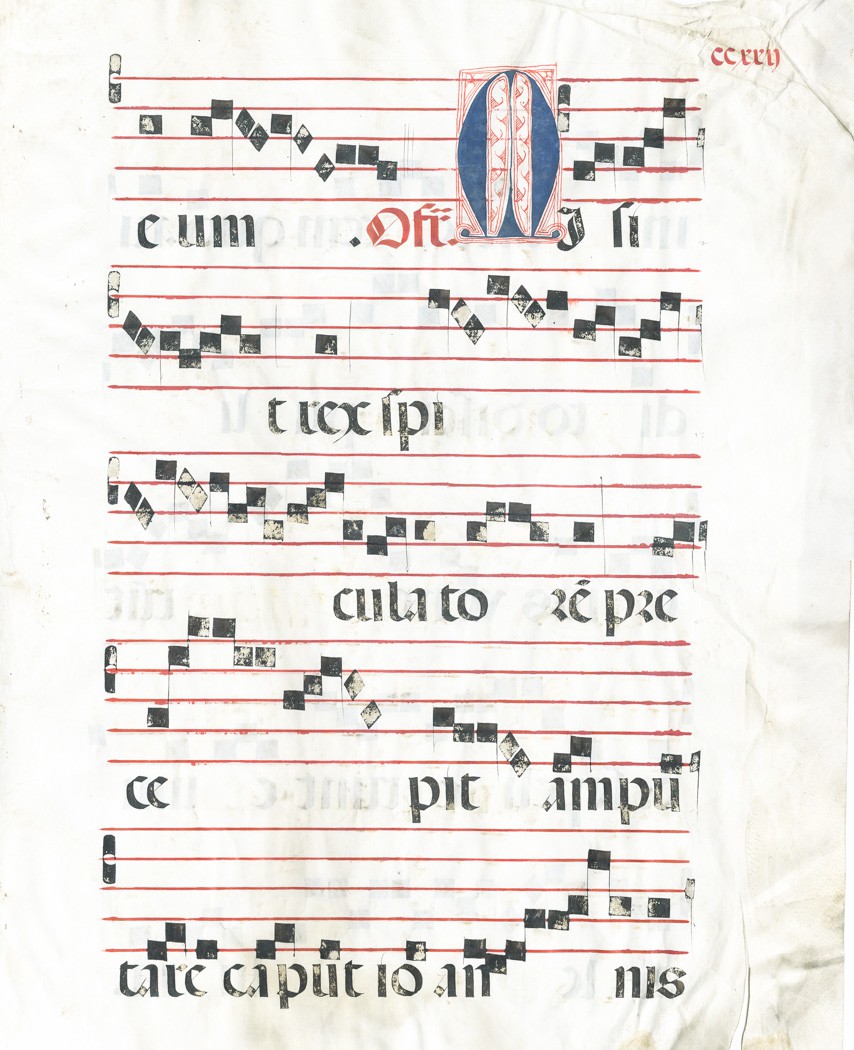 ccxxij
cum . Off. MJ si
t rex spi
cula to rē pre
ce pit ampu
tare caput io an nis